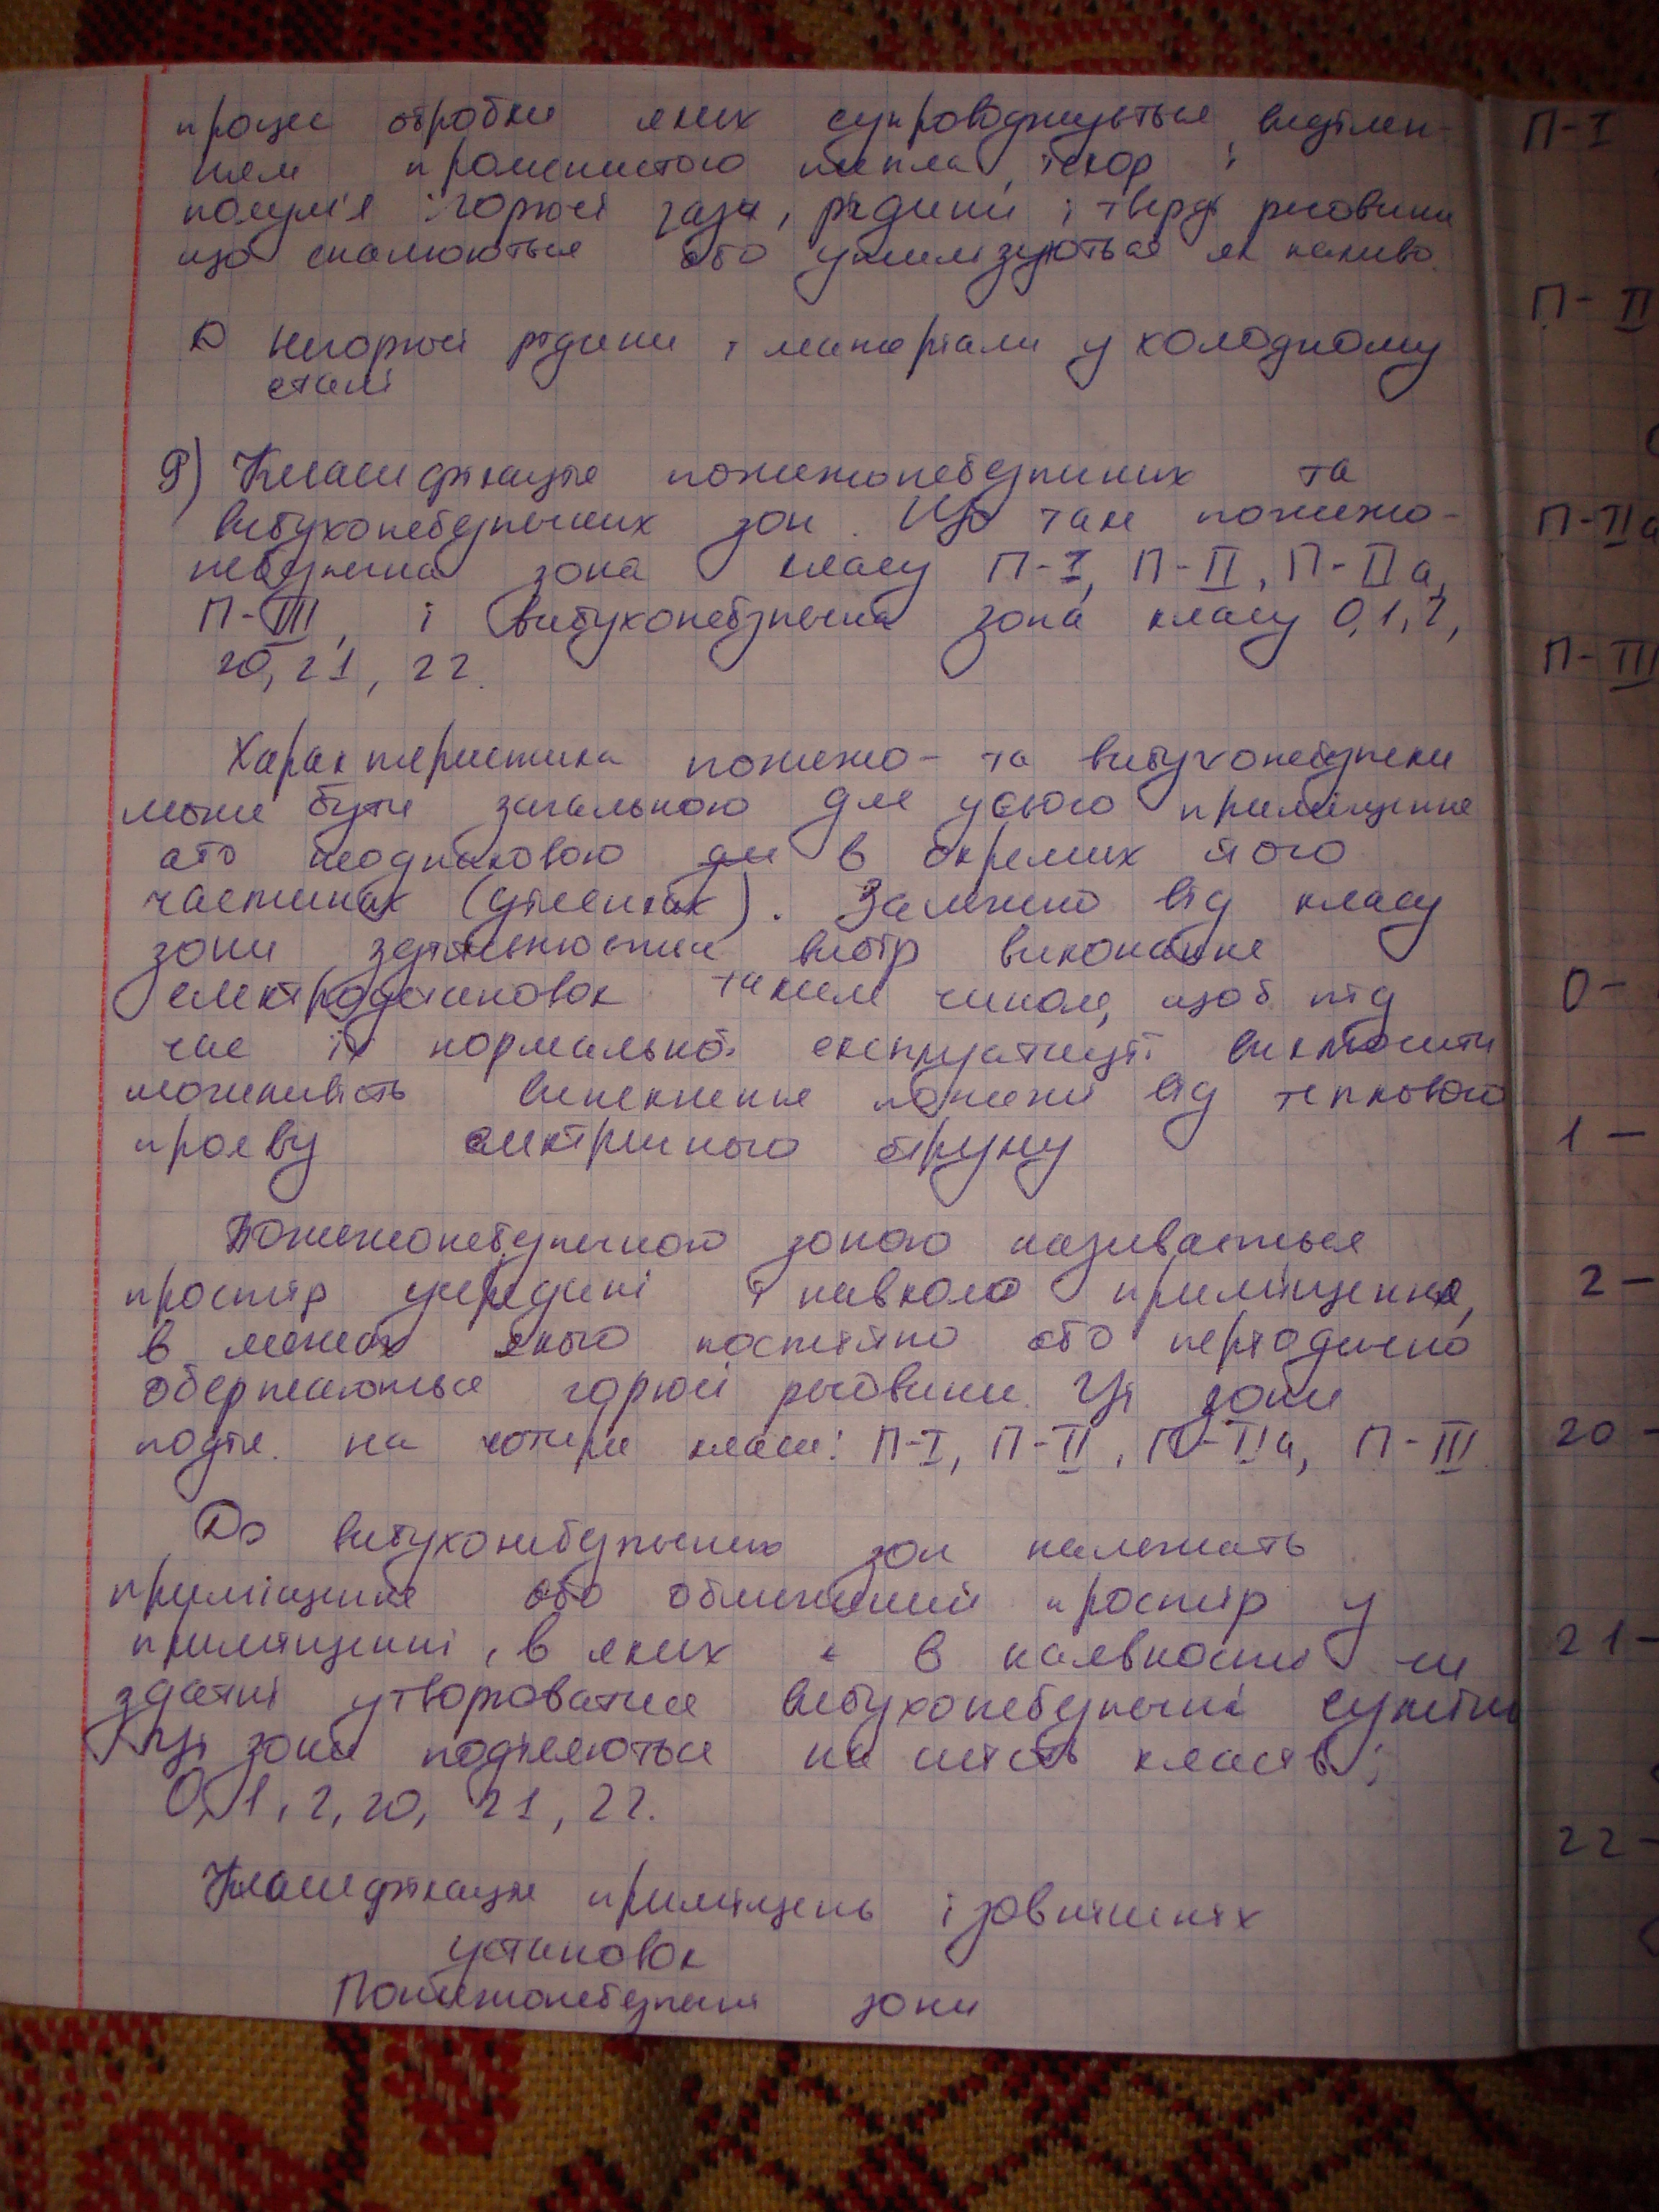 процес обробки яких супроводжується виділен-
ням променистого тепла, іскор і
полум'я; горючі гази, рідини і тверді речовини
що спалюються або утилізуються як паливо.
Д Негорючі рідини і матеріали у холодному
стані
9) Класифікація пожежонебезпечних та
вибухонебезпечних зон. Що таке пожежо-
небезпечна зона класу П-I, П-II, П-IIа,
П-III, і вибухонебезпечна зона класу 0,1,2,
20, 21, 22.
Характеристика пожежо- та вибухонебезпеки
може бути загальною для усього приміщення
або неоднаковою в окремих його
частинах (ділянках). Залежно від класу
зони здійснюється вибір виконання
електроустановок таким чином, щоб під
час їх нормальної експлуатації виключити
можливість виникнення пожежі від теплового
прояву електричного струму
Пожежонебезпечною зоною називається
простір усередині і навколо приміщення,
в межах якого постійно або періодично
обертаються горючі речовини. Ці зони
поділ. на чотири класи: П-I, П-II, П-IIа, П-III.
До вибухонебезпечних зон належать
приміщення або обмежений простір у
приміщенні, в яких є в наявності чи
здатні утворюватися вибухонебезпечні суміші
Ці зони поділяються на шість класів:
0, 1, 2, 20, 21, 22.
Класифікація приміщень і зовнішніх
установок
Пожежонебезпечні зони
П-I
П-II
П-IIа
П-III
0-
1-
2-
20-
21-
22-